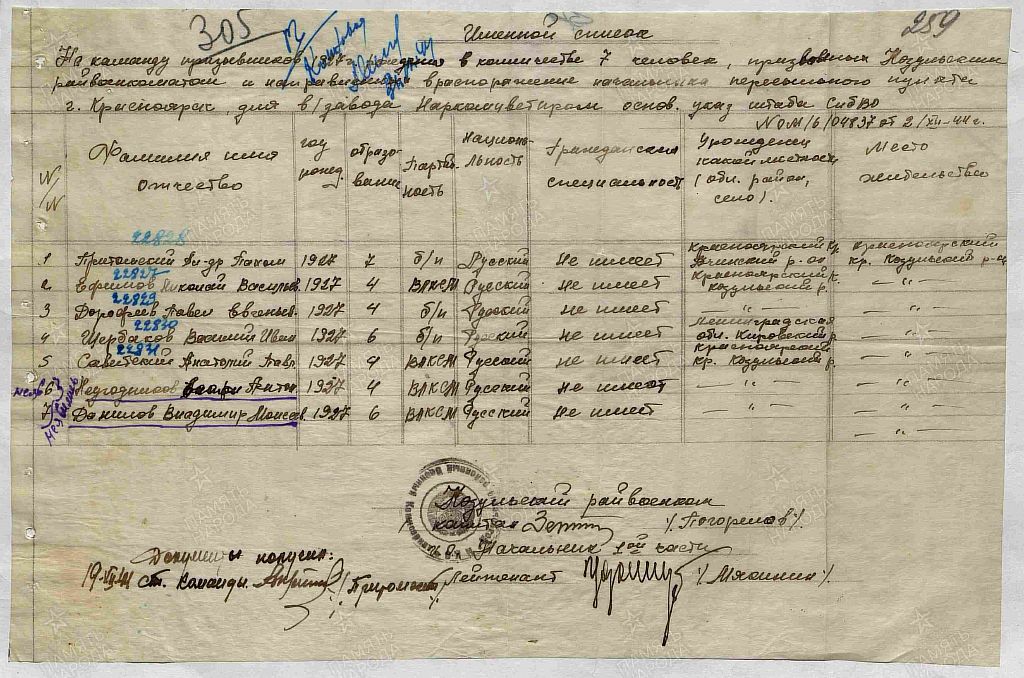 305
259
Именной список
На команду призывников 1927г. рождения в количестве 7 человек, призванных Козульским
райвоенкоматом и направляемых в распоряжение начальника пересыльного пункта
г. Красноярск для в/завода Наркомцветпром. основ. указ штаба СибВО
№ ОМ/6/04837 от 2/XII-44 г.
N/N
Фамилия имя отчество
год рожд.
образование
Партийность
Национальность
Гражданская специальность
Уроженец какой местности (обл. район, село).
Место жительства
22828
1 Ал-др 1927 7 б/п Русский не имеет Красноярский кр. Ачинский р-он Красноярский кр. Козульский р-он
22827
2 Ефимов Николай Васильев. 1927 4 ВЛКСМ Русский не имеет Красноярский к. Козульский р. — " —
22829
3 Дорофеев Павел Евгеньев. 1927 4 б/п Русский не имеет " — " —
22830
4 Щербаков Василий Иван 1927 6 б/п Русский не имеет Ленинградская обл. Кировский р. — " —
22831
5 Савитский Анатолий Павл. 1927 4 ВЛКСМ Русский не имеет Красноярский кр. Козульский р. — " —
6 Негодников Антон. 1927 4 ВЛКСМ Русский не имеет — " — — " —
7 Данилов Владимир Моисеев. 1927 6 ВЛКСМ Русский не имеет — " — — " —
— " —
Козульский райвоенком
капитан /Погорелов/.
Начальник 1ой части
Лейтенант /Мясинин/.
Документы получил:
19-XII-44 ст. команды
ПАМЯТЬ НАРОДА